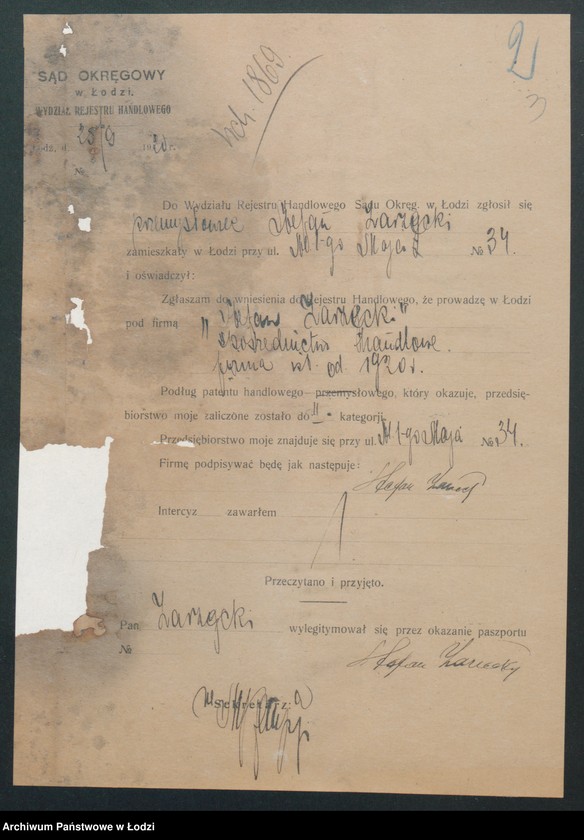 2
3
SĄD OKRĘGOWY
w Łodzi.
WYDZIAŁ REJESTRU HANDLOWEGO
25/9 1920 r.
1869
Do Wydziału Rejestru Handlowego Sądu Okręg. w Łodzi zgłosił się
przemysłowiec Stefan Zarzecki
zamieszkały w Łodzi przy ul. 1-go Maja № 34.
i oświadczył:
Zgłaszam do wniesienia do Rejestru Handlowego, że prowadzę w Łodzi
pod firmą „Stefan Zarzecki"
Pośrednictwo Handlowe.
firma ist. od 1920 r.
Podług patentu handlowego—przemysłowego, który okazuje, przedsię-
biorstwo moje zaliczone zostało do II kategorji.
Przedsiębiorstwo moje znajduje się przy ul. 1-go Maja № 34.
Firmę podpisywać będę jak następuje:
Stefan Zarzecki
Intercyz zawarłem
Przeczytano i przyjęto.
Pan Zarzecki wylegitymował się przez okazanie paszportu
№
Stefan Zarzecki
Sekretarz:
Archiwum Państwowe w Łodzi